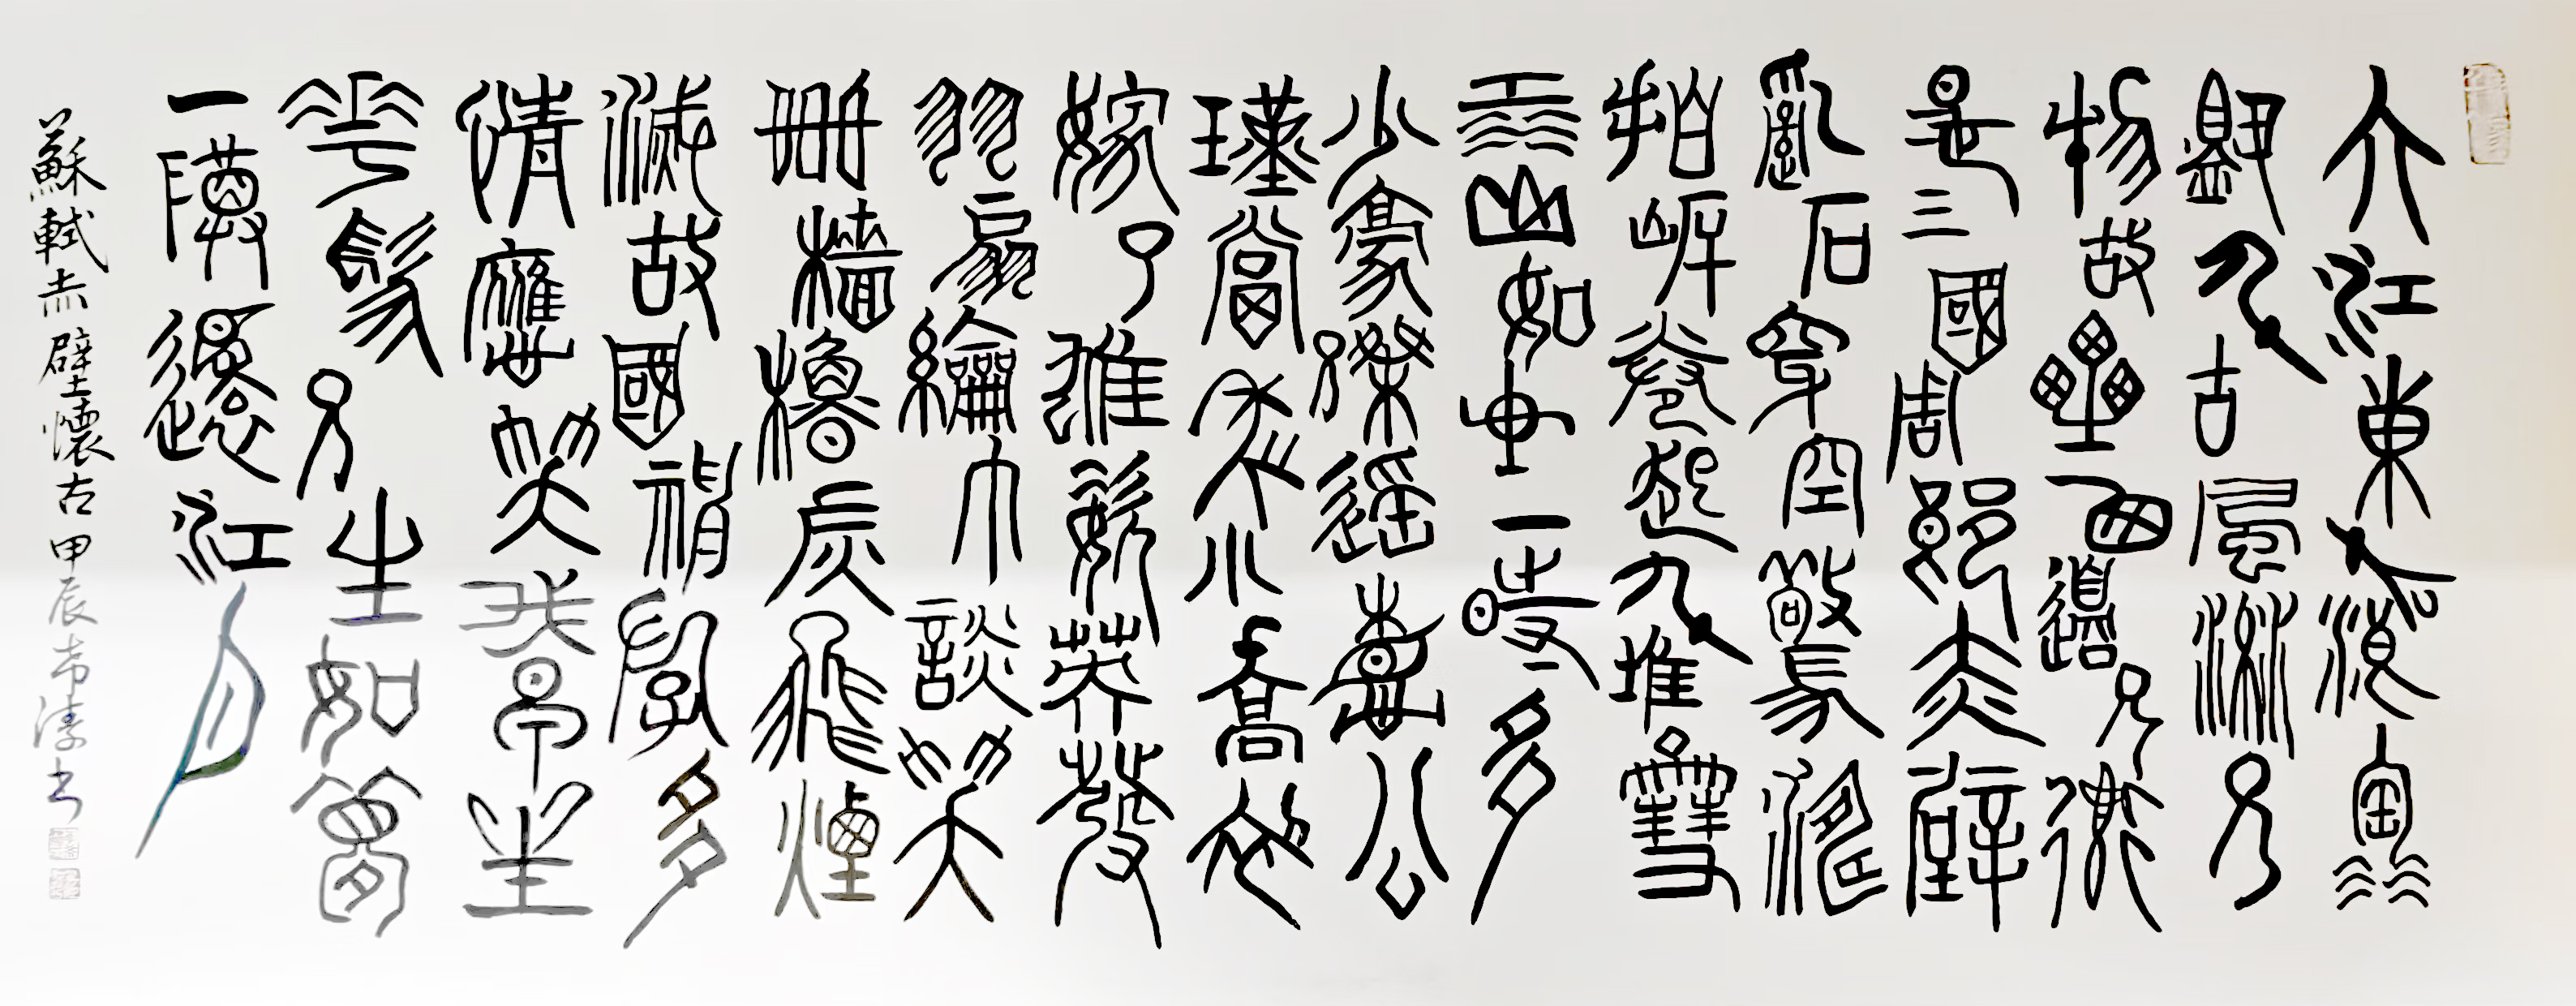 大江東去浪淘
盡千古風流人
物故壘西邊人道
是三國周郎赤壁
亂石穿空驚濤
拍岸捲起千堆雪
江山如畫一時多
少豪傑遙想公
瑾當年小喬初
嫁了雄姿英發
羽扇綸巾談笑
間檣櫓灰飛煙
滅故國神遊多
情應笑我早生
華髮人生如夢
一樽還江月
蘇軾赤壁懷古 甲辰 書